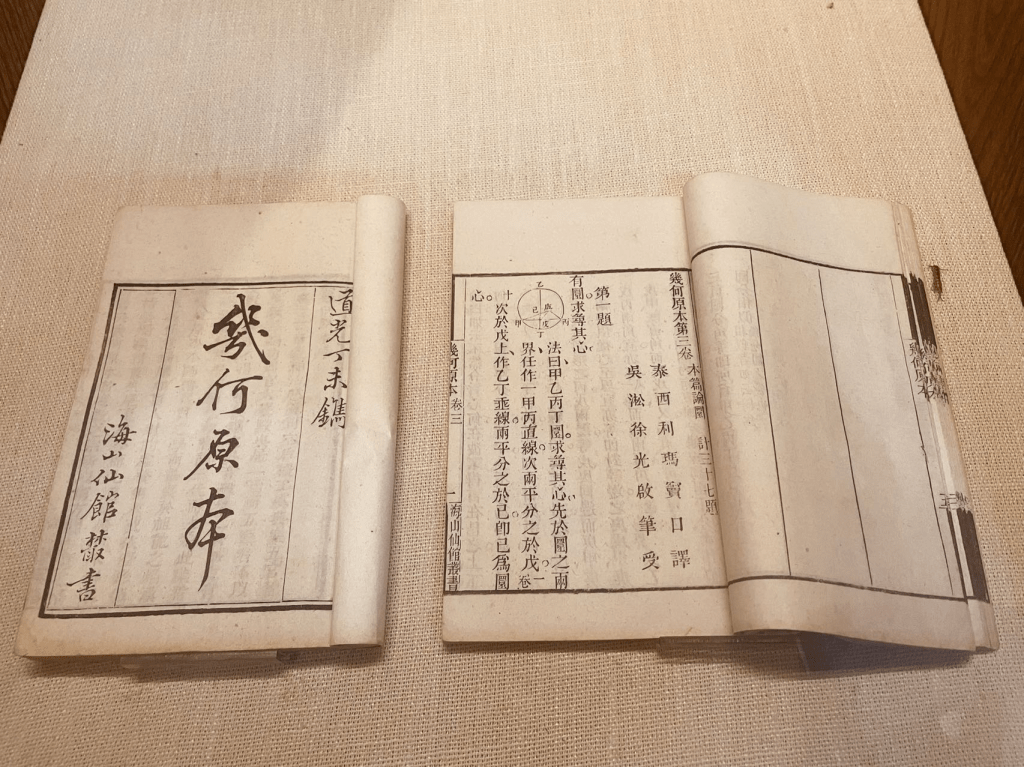 道光丁未鐫
幾何原本
海山仙館叢書
幾何原本第三卷 本篇論圜 計三十七題
泰西利瑪竇口譯
吳淞徐光啟筆受
第一題
有圜求尋其心
法曰甲乙丙丁圜求尋其心先於圜之兩
界任作一甲丙直線次兩平分之於戊一卷
十次於戊上作乙丁垂線兩平分之於己即己為圜
心
乙
庚
己
戊
甲
丙
丁
幾何原本 卷三 一 海山仙館叢書
幾何原本